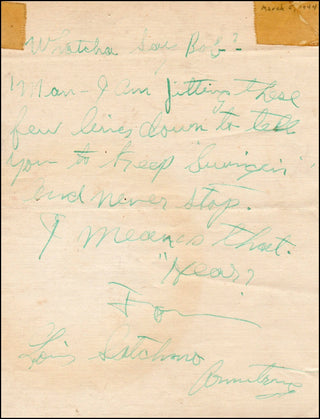 March 5, 1944
"Whatcha Say Bob"?
Man - I am jitting these
few lines down to tell
you to keep "Swingin"
and never stop.
I means that.
"Hear?
From
Louis Satchmo
Armstrong